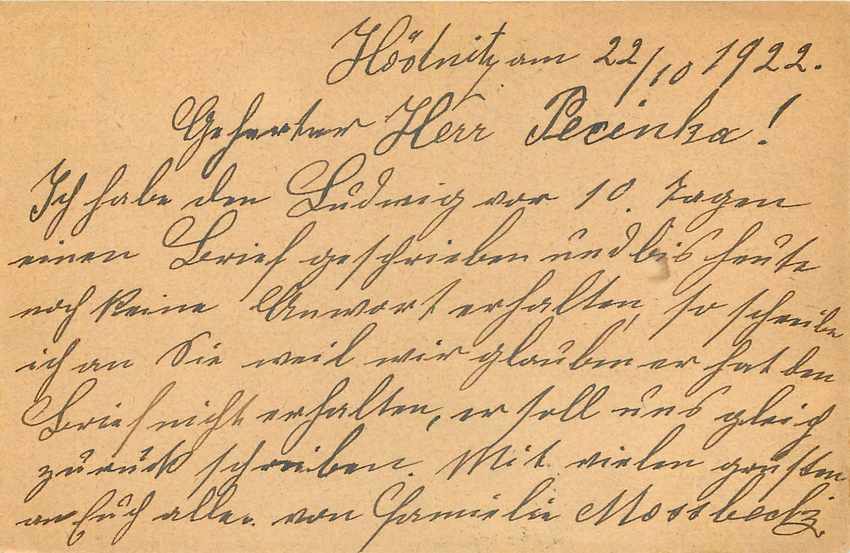 Hödnitz am 22/10 1922.
Geherter Herr Pecinka!
Ich habe den Ludwig vor 10. Tagen
einen Brief geschrieben und bis heute
noch keine Anwort erhalten, so schreibe
ich an Sie weil wir glauben er hat den
Brief nicht erhalten, er soll uns gleich
zurück schreiben. Mit vielen grüsten
an Euch alle. von Familie Mossbeck